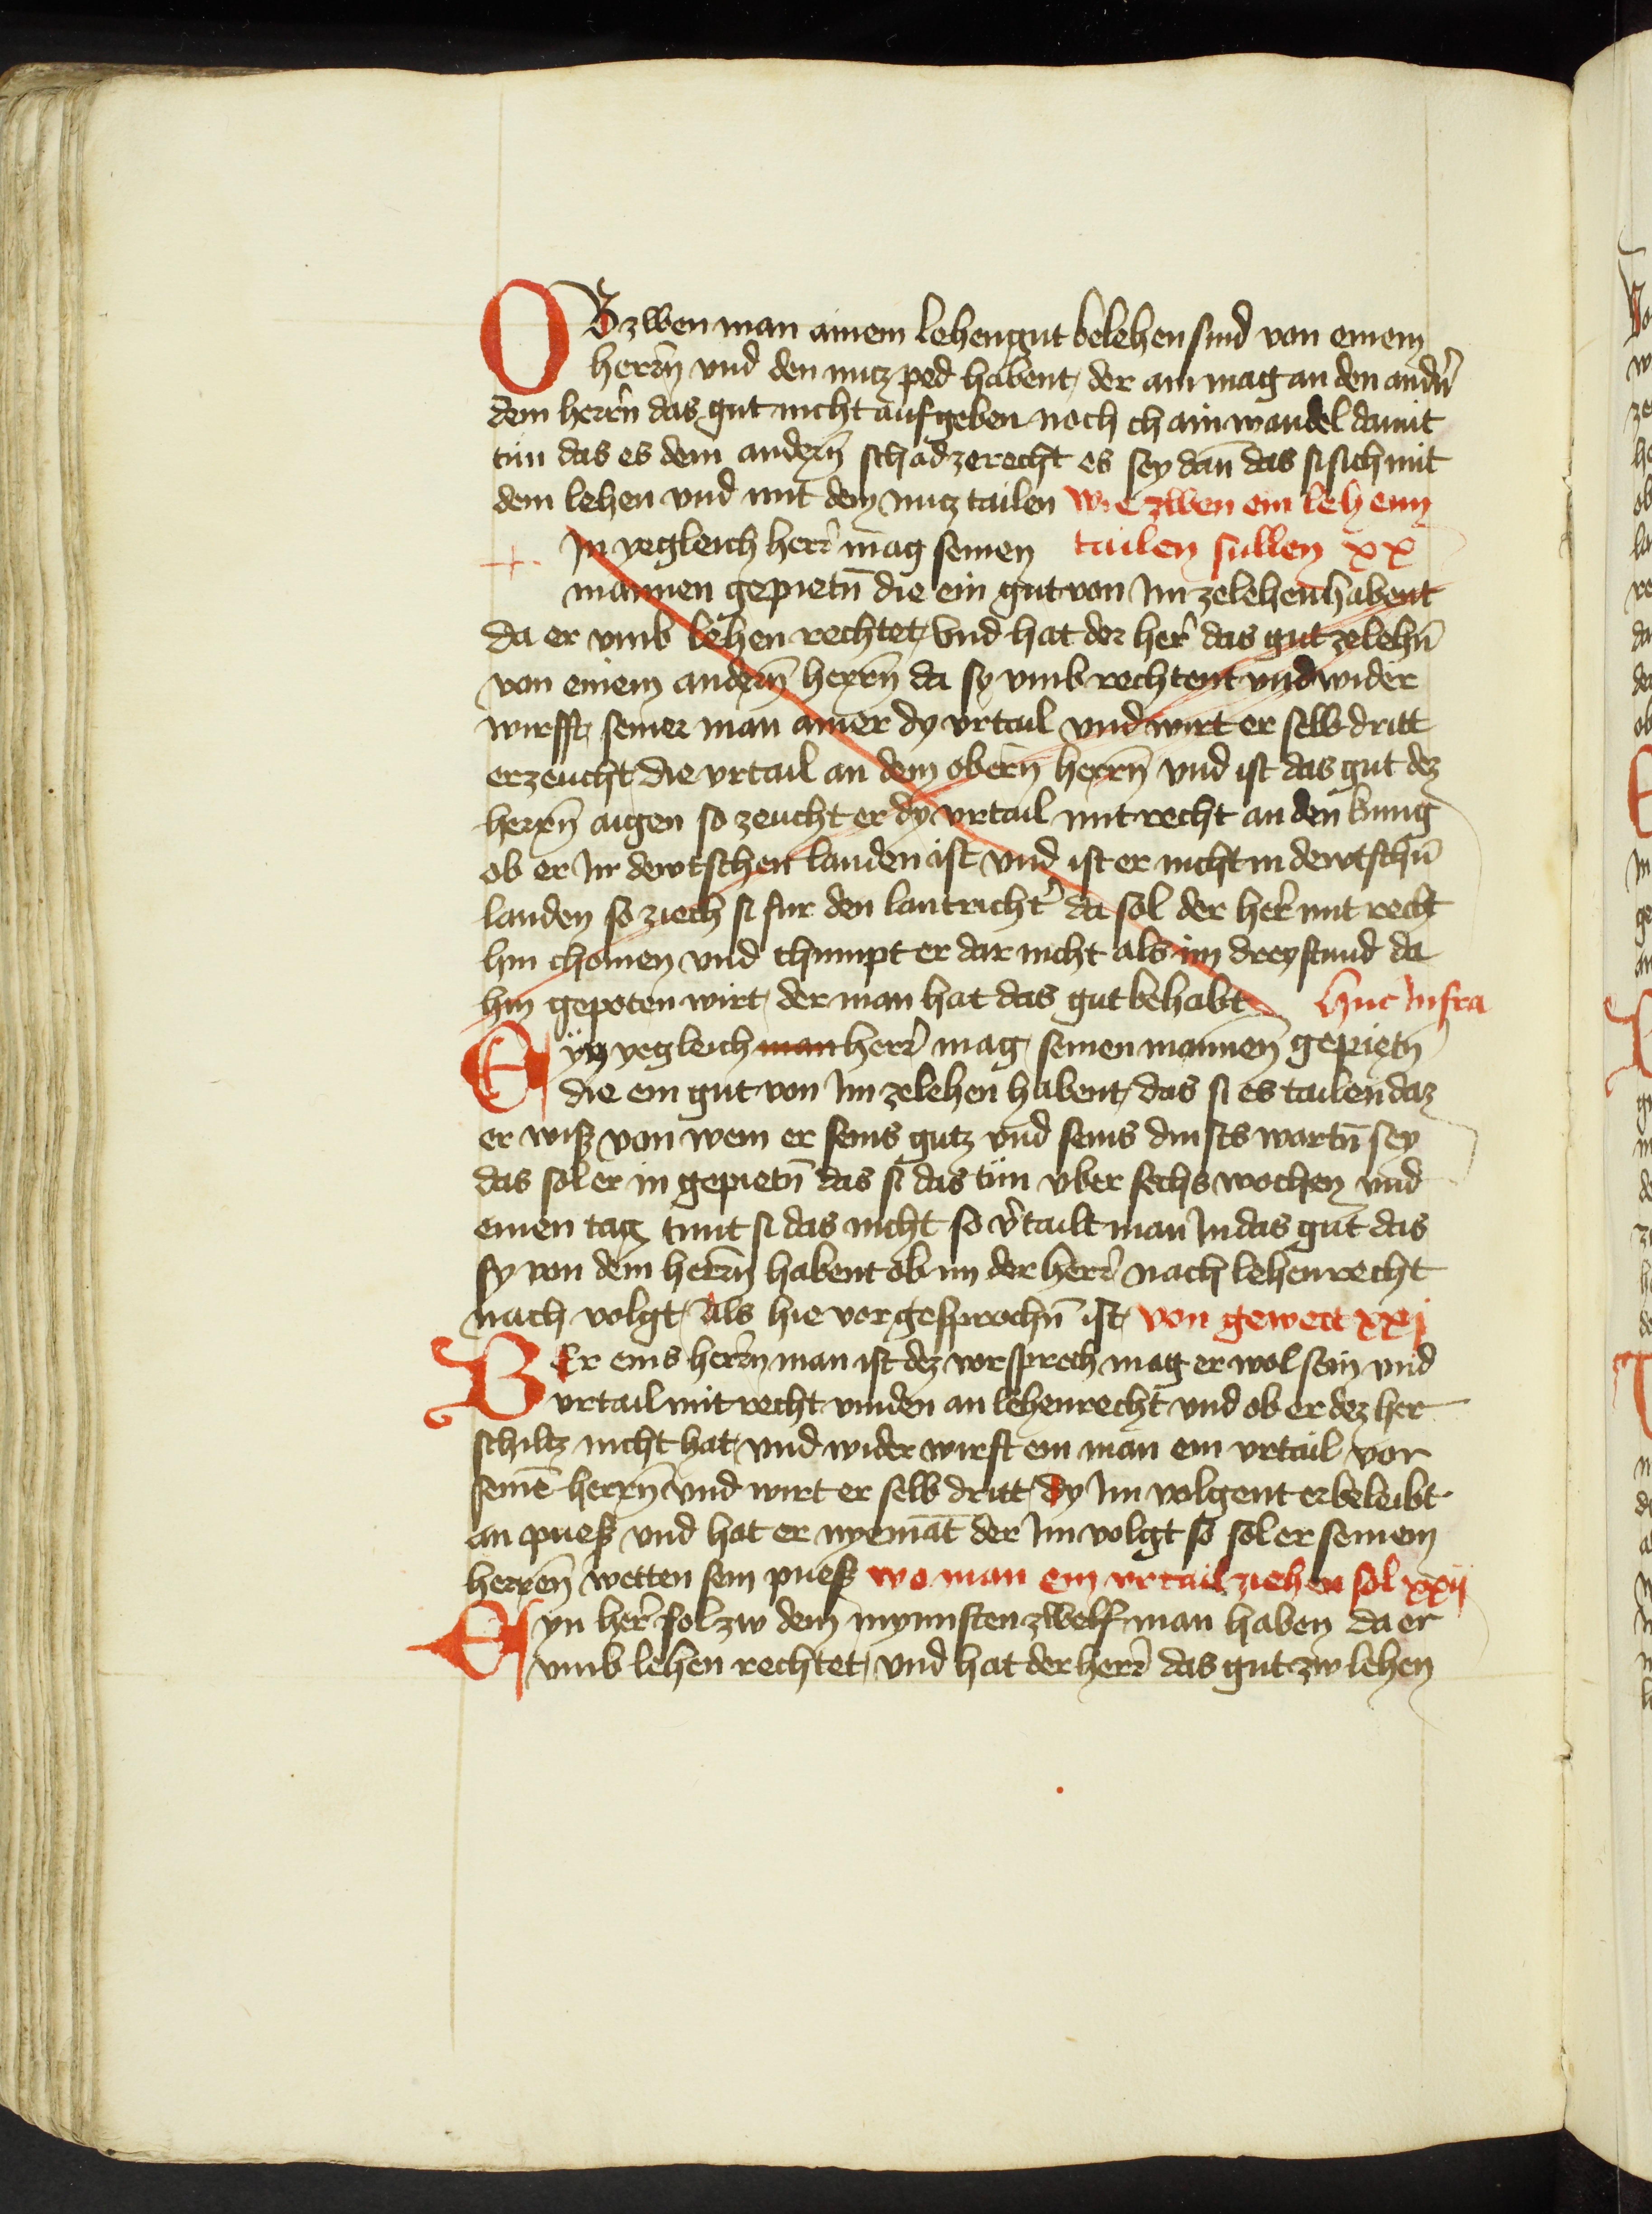 OB zwen man ainem lehengut belehen sind von einem
herrn̄ vnd den nucz ped habent, der ain mag an den andn̄
dem herrn̄ das gut nicht aufgeben noch chain wandel damit
tün das es dem andern̄ schad ze recht es sey dan̄ das si sich mit
dem lehen vnd mit dem nucz tailen wie zwen ein lehenn
In yegleich herr̄ mag seinen tailen sullen xx
mannen gepietn̄ die ein gut von Im ze lehen habent
da er vmb lehen rechtet, Vnd hat der her̄ das gut ze lehn̄
von einem andern̄ herrn̄ da sy vmb rechtent vnd wider
wirfft, seiner man ainer dy vrtail vnd wirt er selb dritt
erzeucht die vrtail an dem obern̄ herrn̄ vnd ist das gut dez
herrn̄ aigen so zeucht er dy vrtail mit recht an den kunig
ob er In dewtschen landen ist vnd ist er nicht in dewtschn̄
landen so ziech si fur den lantricht̄ da sol der her̄ mit recht
hin chomen vnd chumpt er dar nicht als im dreystund da
hin gepoten wirt, der man hat das gut behabt huc Infra
Eyn yegleich man herr̄ mag seinen mannen̄ gepietn̄
die ein gut von Im ze lehen habent, das si es tailen daz
er wiss von wem er seins gutz vnd seins dinsts wartn̄ sey
das sol er in gepietn̄ das si das tün vber sechs wochen vnd
einen tag tünt si das nicht so v̄tailt man In das gut das
sy von dem herrn̄ habent ob im der herr̄ nach lehenrecht
nach volgt, Als hie vor gesprochn̄ ist, von gewett xxj
WEr eins herrn̄ man ist dez vorsprech mag er wol sein vnd
vrtail mit recht vinden an lehenrecht vnd ob er dez her
schiltz nicht hat, vnd wider wirft ein man ein vrtail vor
seinē herrn̄ vnd wirt er selb dritt, dy Im volgent er beleibt
an puess vnd hat er nyemāt der Im volgt so sol er seinem
herren̄ wetten sein puess wo man ein vrtail ziehen sol xxij
Eyn her̄ sol zw dem mynnsten zwelf man haben da er
vmb lehen rechtet, vnd hat der herr̄ das gut zw lehen